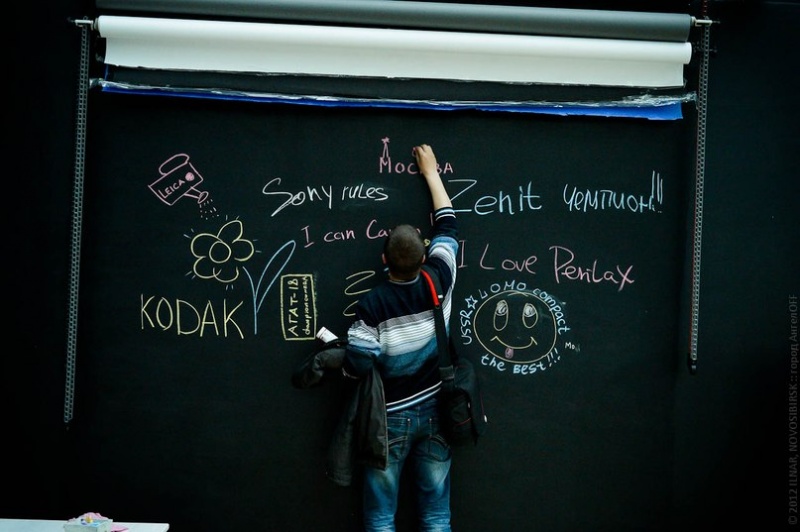 Москва
LEICA
Sony rules
Zenit чемпион!!!
I can Ca
I Love Penlax
KODAK
АГАТ-18
USSR ☆ LOMO compact
the Best!!!
© 2012 ILNAR, NOVOSIBIRSK :: город АнгелOFF